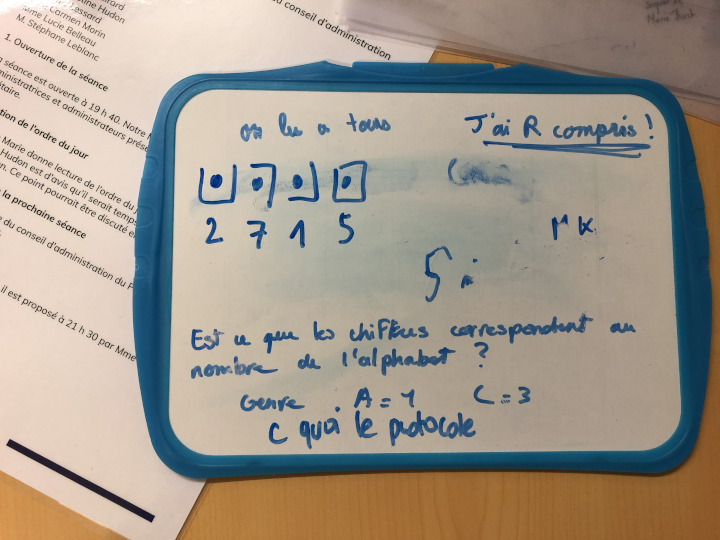 sard
ine Hudon
essard
Carmen Morin
Mme Lucie Belleau
M. Stéphane Leblanc
du conseil d'administration
1. Ouverture de la séance
séance est ouverte à 19 h 40. Notre
ministratrices et administrateurs prése
itaire.
tion de l'ordre du jour
Marie donne lecture de l'ordre du j
Hudon est d'avis qu'il serait temps
n. Ce point pourrait être discuté e
la prochaine séance
du conseil d'administration du P
il est proposé à 21 h 30 par Mme
on lu a tous
J'ai R compris !
2 7 1 5
5 i
Est ce que les chiffres correspondent au
nombre de l'alphabet ?
Genre . A = 1 C = 3
C quoi le protocole